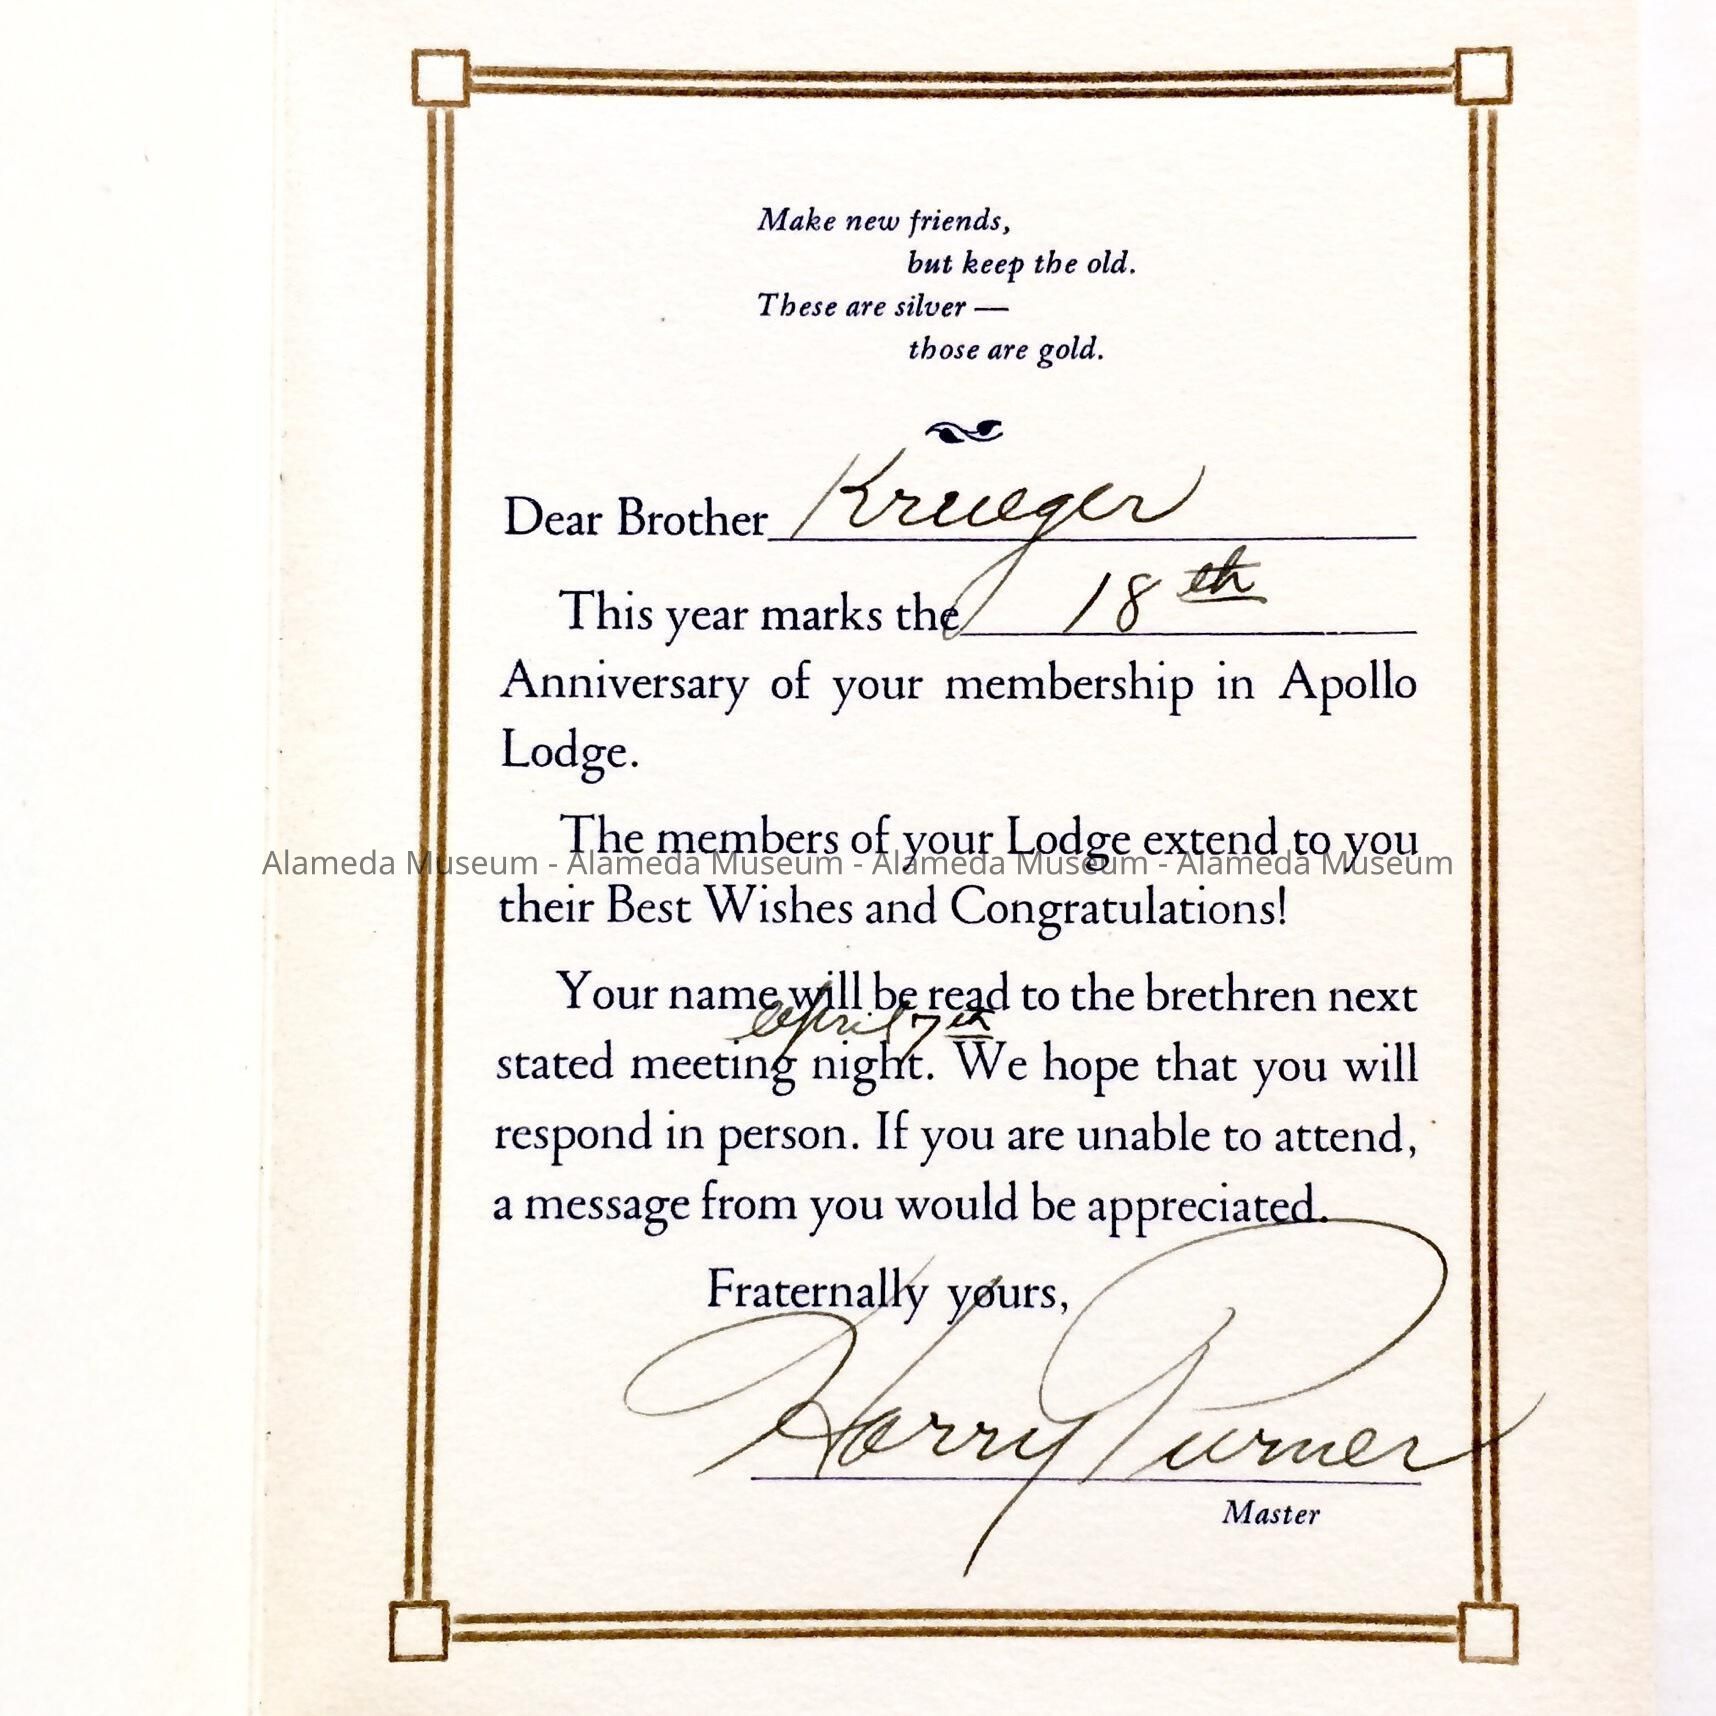 Make new friends,
but keep the old.
These are silver —
those are gold.
Dear Brother Krueger
This year marks the 18th
Anniversary of your membership in Apollo
Lodge.
The members of your Lodge extend to you
Alameda Museum - Alameda Museum - Alameda Museum - Alameda Museum
their Best Wishes and Congratulations!
Your name will be read to the brethren next
April 7th
stated meeting night. We hope that you will
respond in person. If you are unable to attend,
a message from you would be appreciated.
Fraternally yours,
Harry Turner
Master